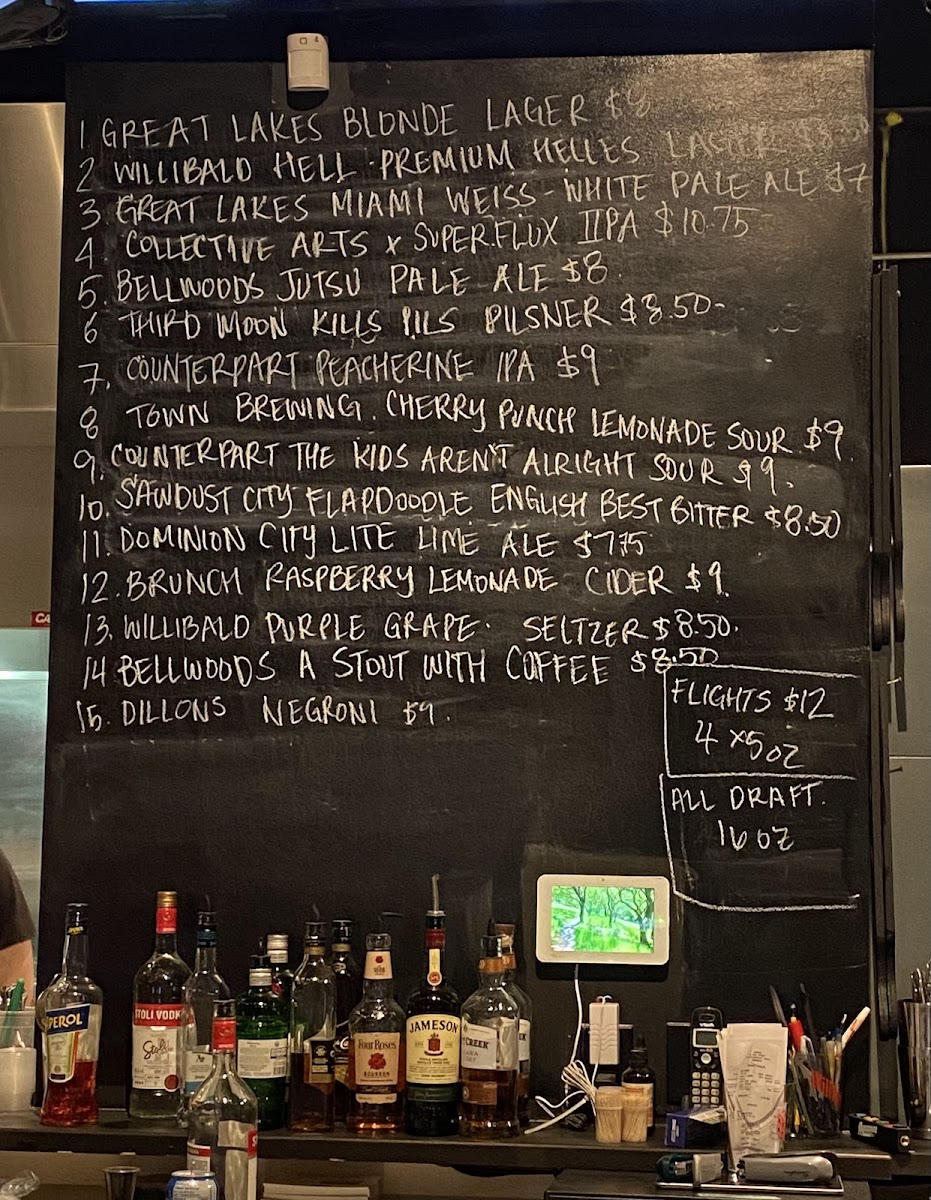 1. GREAT LAKES BLONDE LAGER $8
2 WILLIBALD HELL - PREMIUM HELLES LAGER
3. GREAT LAKES MIAMI WEISS - WHITE PALE ALE $7
4. COLLECTIVE ARTS x SUPERFLUX IIPA $10.75
5. BELLWOODS JUTSU PALE ALE $8.
6 THIRD MOON KILLS PILS PILSNER $8.50-
7. COUNTERPART PEACHERINE IPA $9
8 TOWN BREWING. CHERRY PUNCH LEMONADE SOUR $9.
9. COUNTERPART THE KIDS AREN'T ALRIGHT SOUR $9.
10. SAWDUST CITY FLAPDOODLE ENGLISH BEST BITTER $8.50
11. DOMINION CITY LITE LIME ALE $7.75
12. BRUNCH RASPBERRY LEMONADE CIDER $9.
13. WILLIBALD PURPLE GRAPE. SELTZER $8.50.
14. BELLWOODS A STOUT WITH COFFEE $8.50
15. DILLONS NEGRONI $9.
FLIGHTS $12
4 x 5oz
ALL DRAFT.
16 OZ
APEROL
STOLI VODKA
Stoli
Four Roses
BOURBON
JAMESON
CREEK